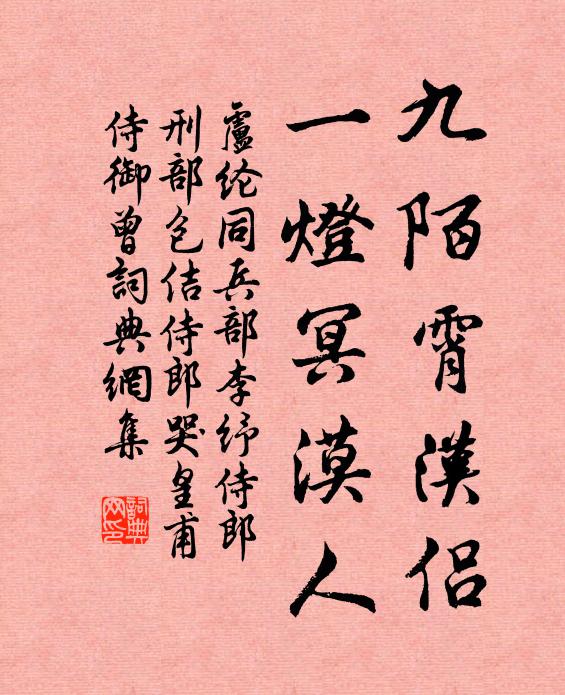 九陌霄漢侣
一燈冥漠人
盧纶同兵部李纾侍郎
刑部包佶侍郎哭皇甫
侍御曾詞典網集
詞典网印